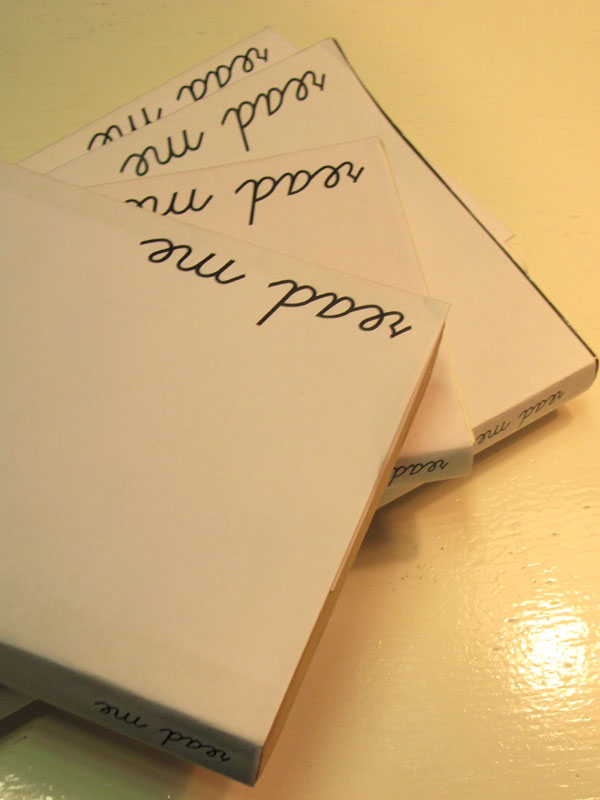 read me
read me
read me
read me
read me
read
read me